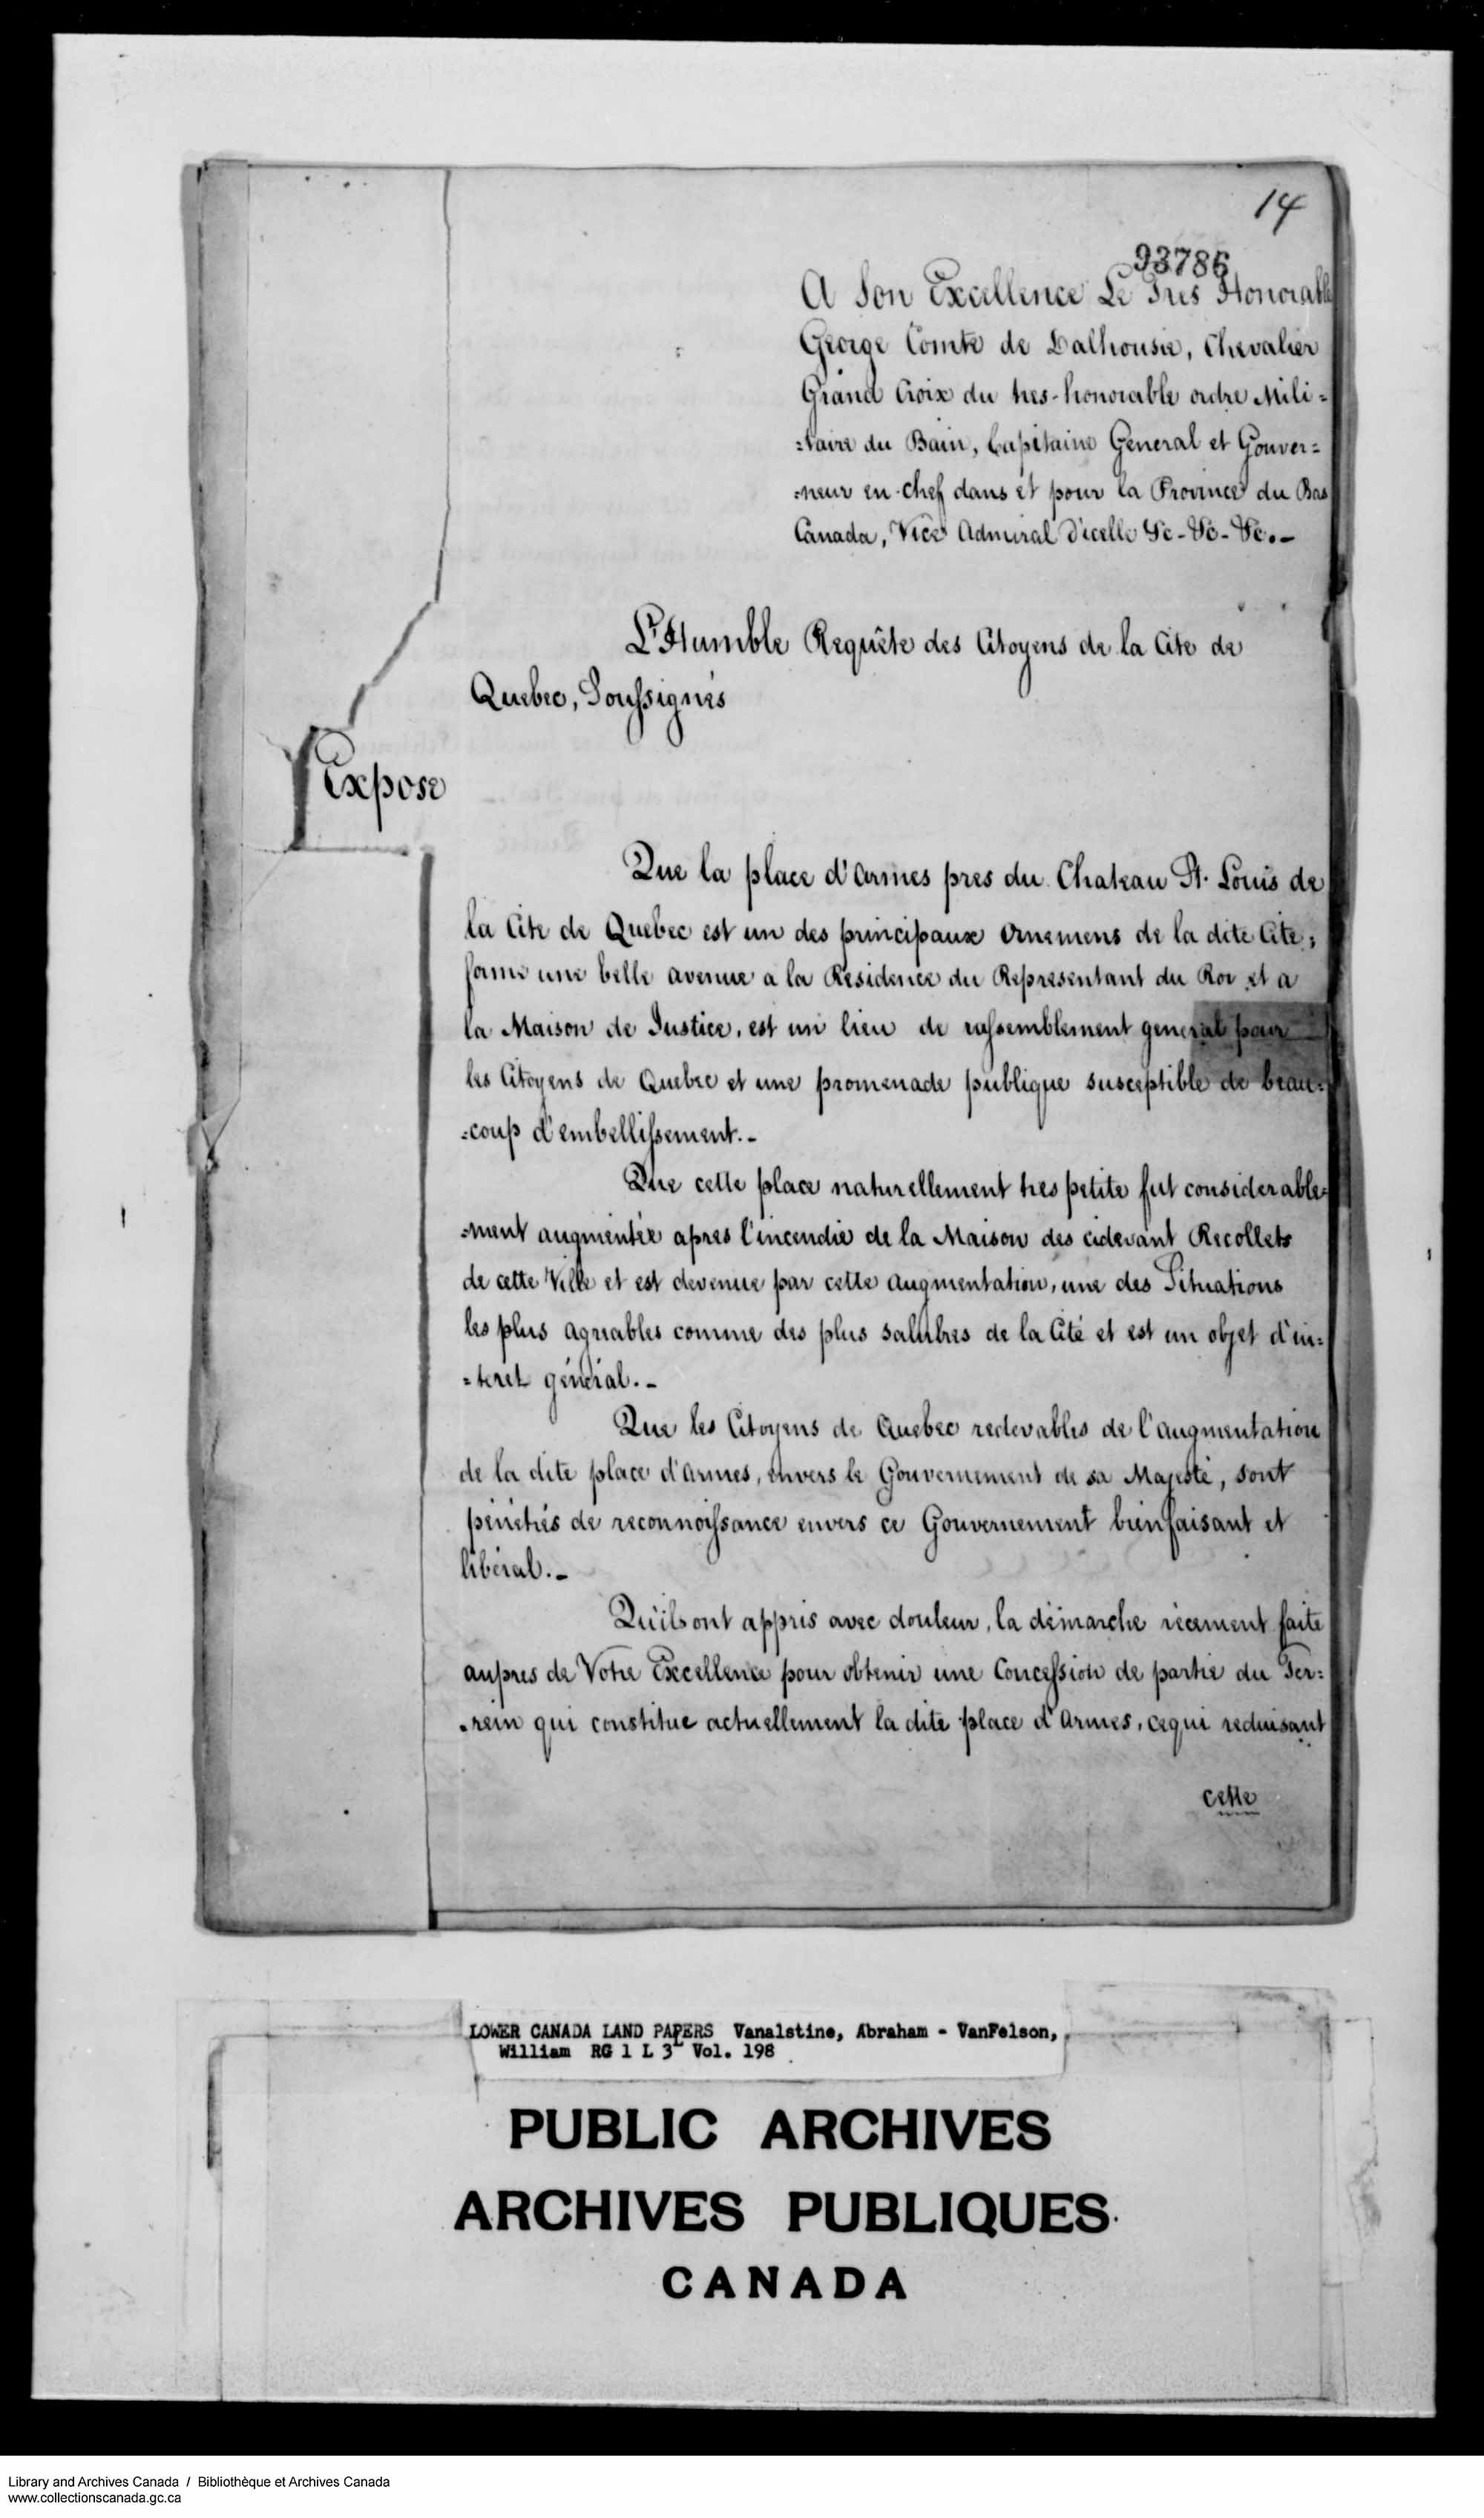 14
93786
A Son Excellence Le Tres Honorable
George Comte de Dalhousie, Chevalier
Grand Croix du tres-honorable ordre Mili=
=taire du Bain, Capitaine General et Gouver=
=neur en Chef dans et pour la Province du Bas
Canada, Vice Admiral d'icelle &c - &c - &c. -
L'Humble Requête des Citoyens de la Cite de
Quebec, Soussignés
Expose
Que la place d'armes pres du Chateau St. Louis de
la Cite de Quebec est un des principaux Ornemens de la dite Cite;
forme une belle avenue a la Residence du Representant du Roi et a
la Maison de Justice, est un lieu de rassemblement general pour
les Citoyens de Quebec et une promenade publique susceptible de beau=
=coup d'embellissement. -
Que cette place naturellement tres petite fut considerable=
=ment augmentée apres l'incendie de la Maison des cidevant Recollets
de cette Ville et est devenue par cette augmentation, une des Situations
les plus agreables comme des plus salubres de la Cité et est un objet d'in=
=teret général. -
Que les Citoyens de Quebec redevables de l'augmentation
de la dite place d'armes, envers le Gouvernement de sa Majesté, sont
pénétrés de reconnoissance envers ce Gouvernement bienfaisant et
libéral. -
Qu'ils ont appris avec douleur, la démarche récement faite
aupres de Votre Excellence pour obtenir une Concession de partie du Ter=
=rein qui constitue actuellement la dite place d'Armes, cequi reduisant
cette
LOWER CANADA LAND PAPERS Vanalstine, Abraham - VanFelson,
William RG 1 L 3L Vol. 198
PUBLIC ARCHIVES
ARCHIVES PUBLIQUES
CANADA
Library and Archives Canada / Bibliothèque et Archives Canada
www.collectionscanada.gc.ca